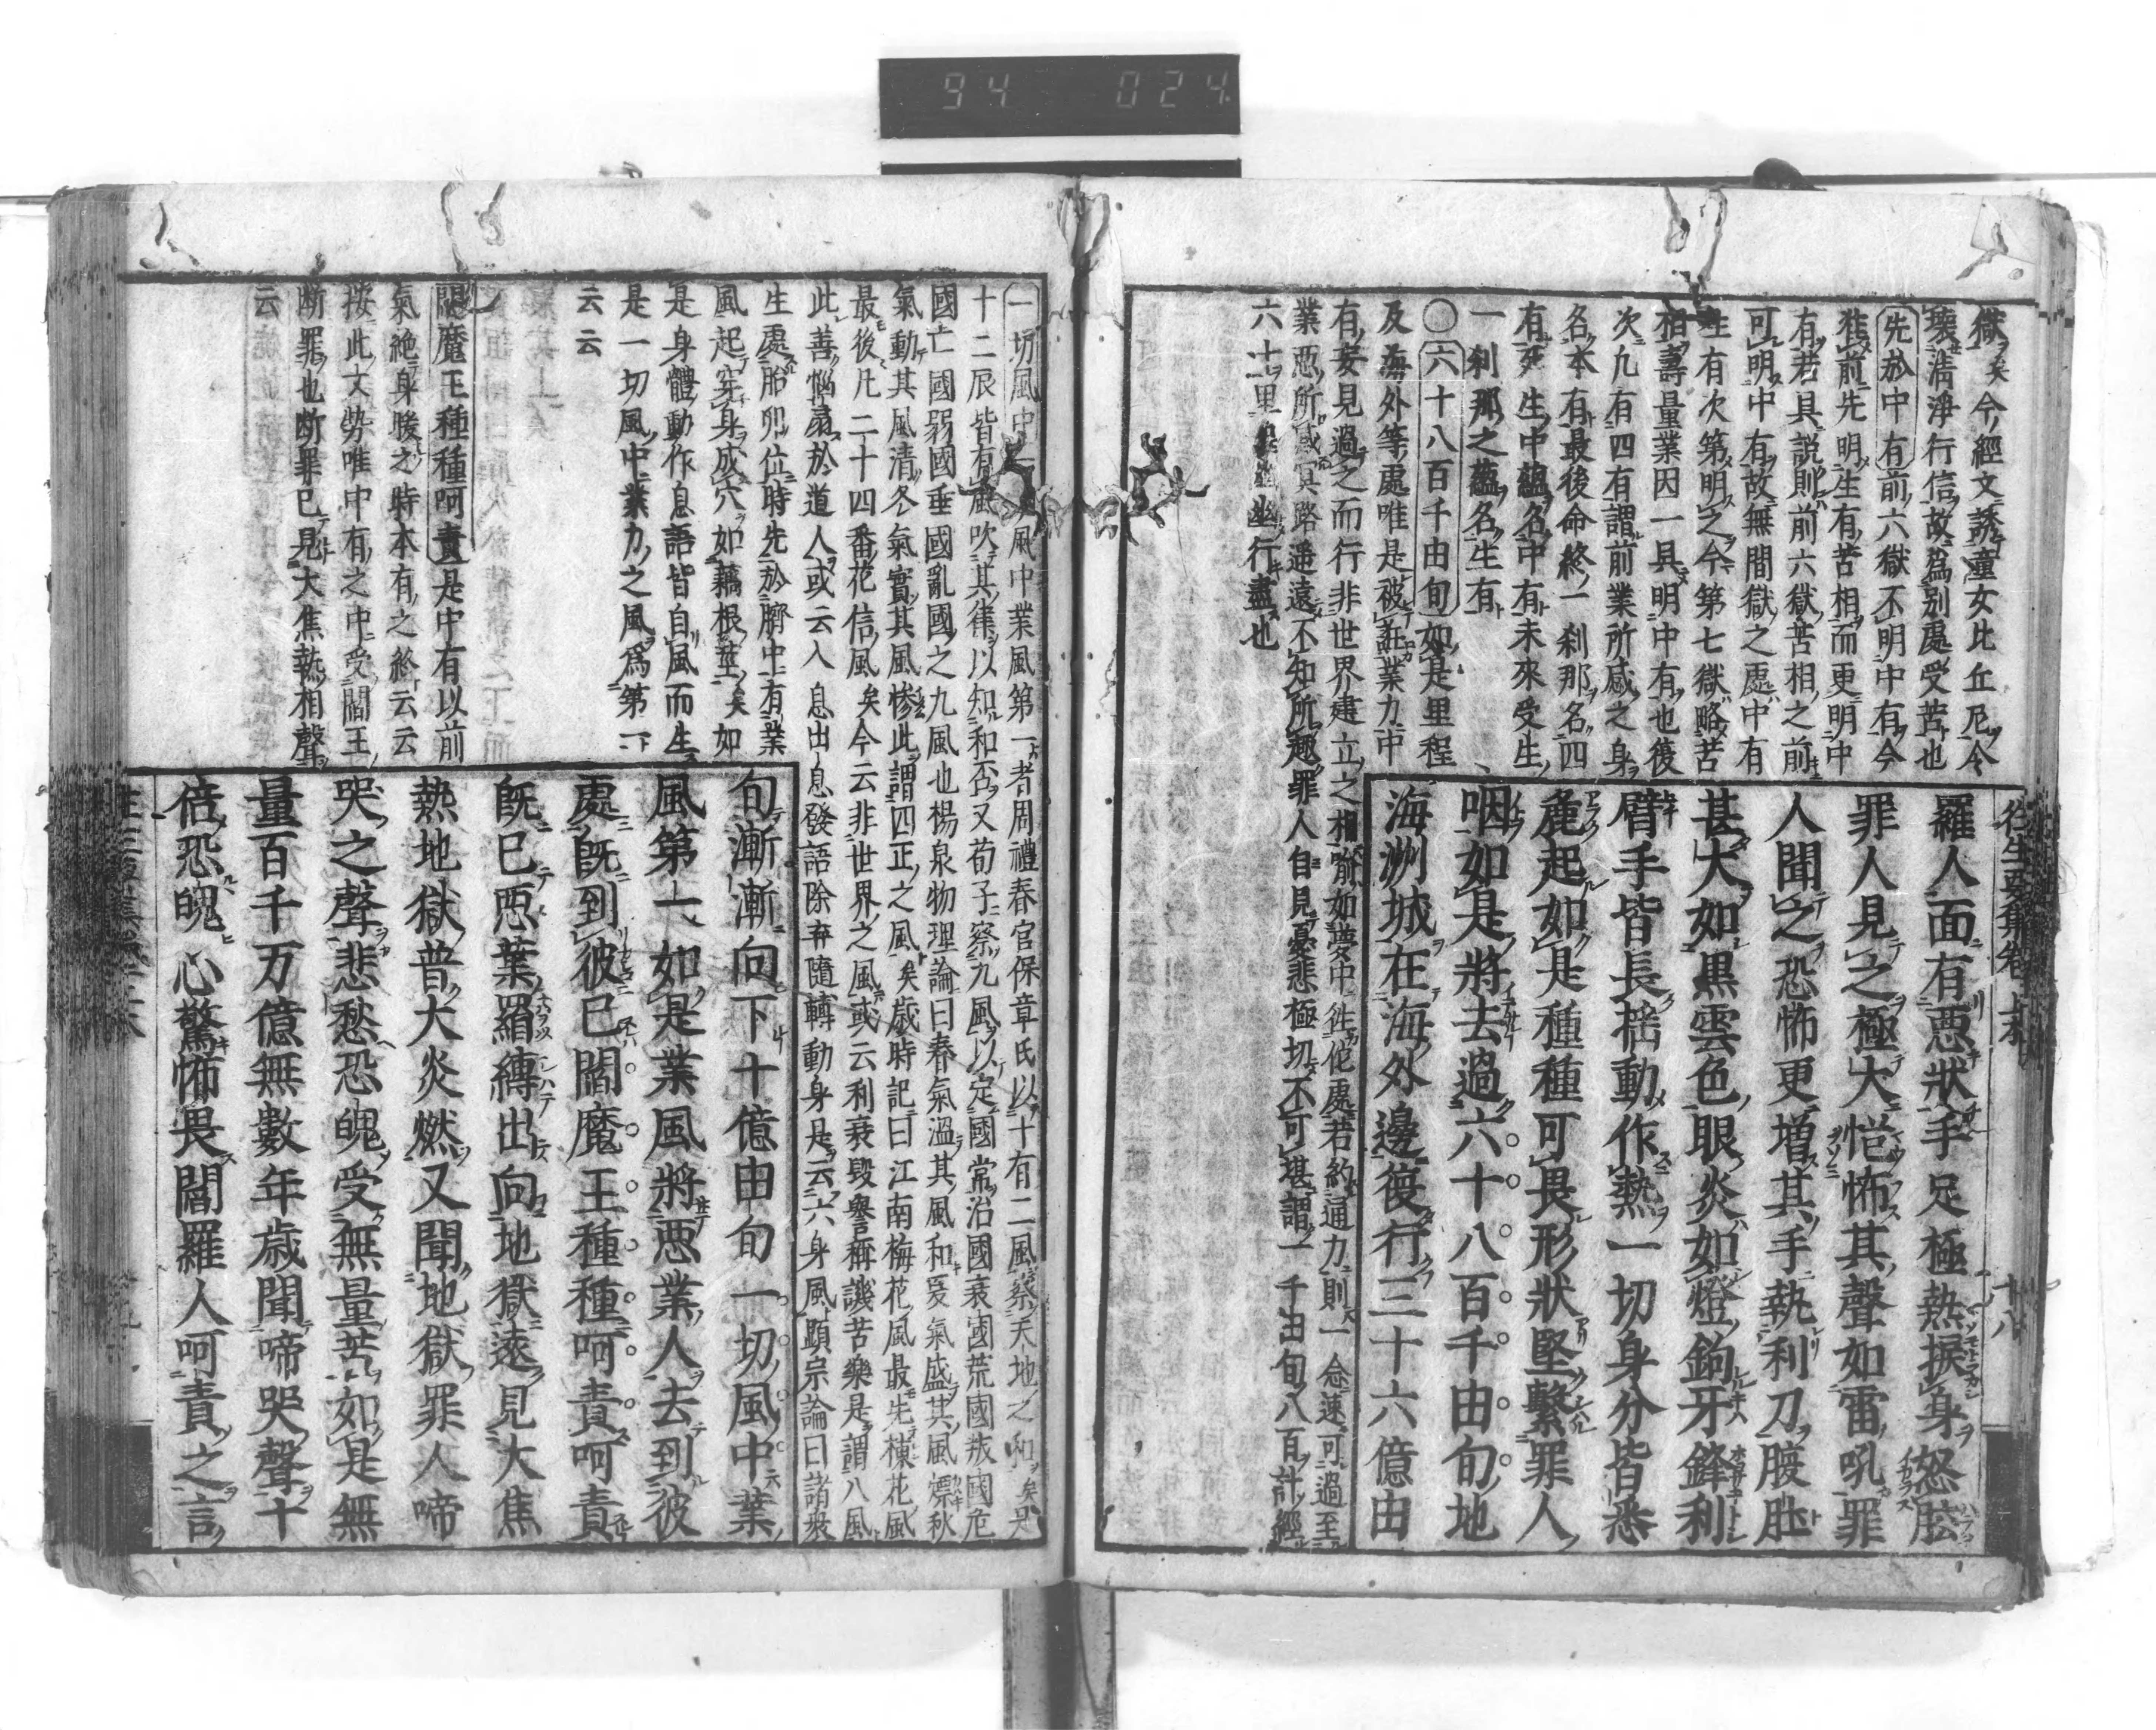 94 024
獄矣今經文誘童女比丘尼今
壊清淨行信故爲別處受苦也
先於中有前六獄不明中有今
從前先明生有苦相而更明中
有若具説則前六獄苦相之前
可明中有故無間獄之處中有
生有次第明之今第七獄略苦
相壽量業因一具明中有也復
次凡有四有謂前業所感之身
名本有最後命終一刹那名四
有死生中蘊名中有未來受生
一刹那之蘊名生有
〇六十八百千由旬如是里程
及海外等處唯是被誑業力中
有妄見過之而行非世界建立之相喩如夢中徃佗處若約通力則一念速可過至
業惡所感冥路遥遠不知所趣罪人自見憂悲極切不可堪謂一千由旬八百計經
六十里幽行盡也
往生要集卷上本 十八
羅人面有惡狀手足極熱捩身怒肱
罪人見之極大恾怖其聲如雷吼罪
人聞之恐怖更増其手執利刀腹肚
甚大如黒雲色眼炎如燈鉤牙鋒利
臂手皆長揺動作熱一切身分皆悉
麁起如是種種可畏形狀堅繫罪人
咽如是將去過六十八百千由旬地
海洲城在海外邊復行三十六億由
一切風中 風中業風第一者周禮春官保章氏以十有二風察天地之和矣是
十二辰皆有風吹其律以知和否又荀子察九風以定國常治國衰國荒國叛國危
國亡國弱國垂國亂國之九風也楊泉物理論曰春氣温其風和夏氣盛其風熛秋
氣動其風清冬氣實其風慘此謂四正之風矣歳時記曰江南梅花風最先楝花風
最後凡二十四番花信風矣今云非世界之風或云利衰毀譽稱譏苦樂是謂八風
此善惱扇於道人或云入息出息發語除弃隨轉動身是云六身風顯宗論曰諸衆
生處胎卵位時先於臍中有業
風起穿身成穴如藕根莖矣如
是身體動作息語皆自風而生
是一切風中業力之風爲第一
云云
閻魔王種種呵責是中有以前
氣絶身暖之時本有之終云云
按此文勢唯中有之中受閻王
断罪也断罪已見大焦熱相聲
云
句漸漸向下十億由旬一切風中業
風第一如是業風將惡業人去到彼
處既到彼已閻魔王種種呵責呵責
既已惡業羂縛出向地獄遠見大焦
熱地獄普大炎燃又聞地獄罪人啼
哭之聲悲愁恐魄受無量苦如是無
量百千万億無數年歳聞啼哭聲十
倍恐魄心驚怖畏閻羅人呵責之言